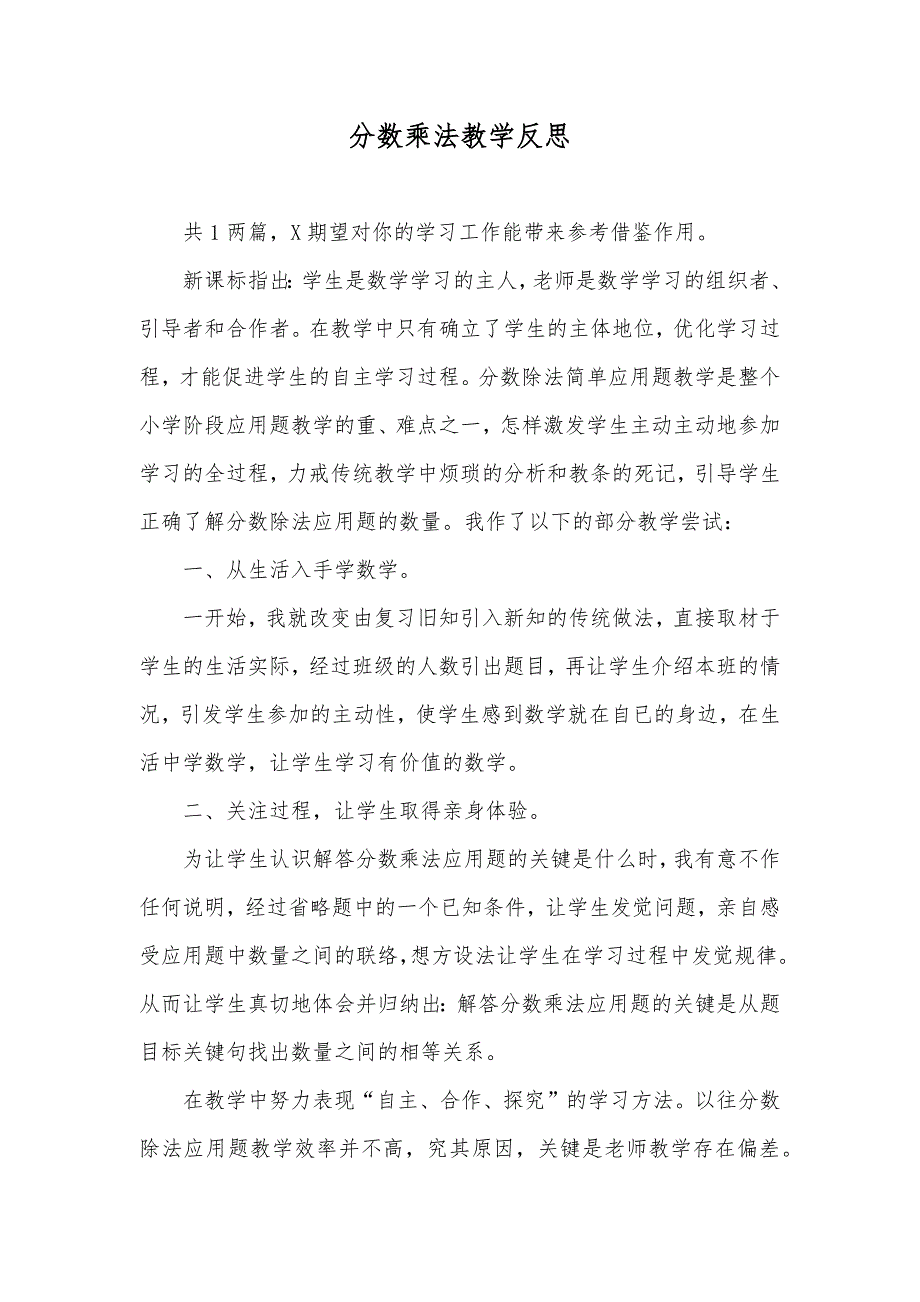 分数乘法教学反思
共 1 两篇，X 期望对你的学习工作能带来参考借鉴作用。
新课标指出：学生是数学学习的主人，老师是数学学习的组织者、
引导者和合作者。在教学中只有确立了学生的主体地位，优化学习过
程，才能促进学生的自主学习过程。分数除法简单应用题教学是整个
小学阶段应用题教学的重、难点之一，怎样激发学生主动主动地参加
学习的全过程，力戒传统教学中烦琐的分析和教条的死记，引导学生
正确了解分数除法应用题的数量。我作了以下的部分教学尝试：
一、从生活入手学数学。
一开始，我就改变由复习旧知引入新知的传统做法，直接取材于
学生的生活实际，经过班级的人数引出题目，再让学生介绍本班的情
况，引发学生参加的主动性，使学生感到数学就在自已的身边，在生
活中学数学，让学生学习有价值的数学。
二、关注过程，让学生取得亲身体验。
为让学生认识解答分数乘法应用题的关键是什么时，我有意不作
任何说明，经过省略题中的一个已知条件，让学生发觉问题，亲自感
受应用题中数量之间的联络，想方设法让学生在学习过程中发觉规律。
从而让学生真切地体会并归纳出：解答分数乘法应用题的关键是从题
目标关键句找出数量之间的相等关系。
在教学中努力表现“自主、合作、探究”的学习方法。以往分数
除法应用题教学效率并不高，究其原因，关键是老师教学存在偏差。